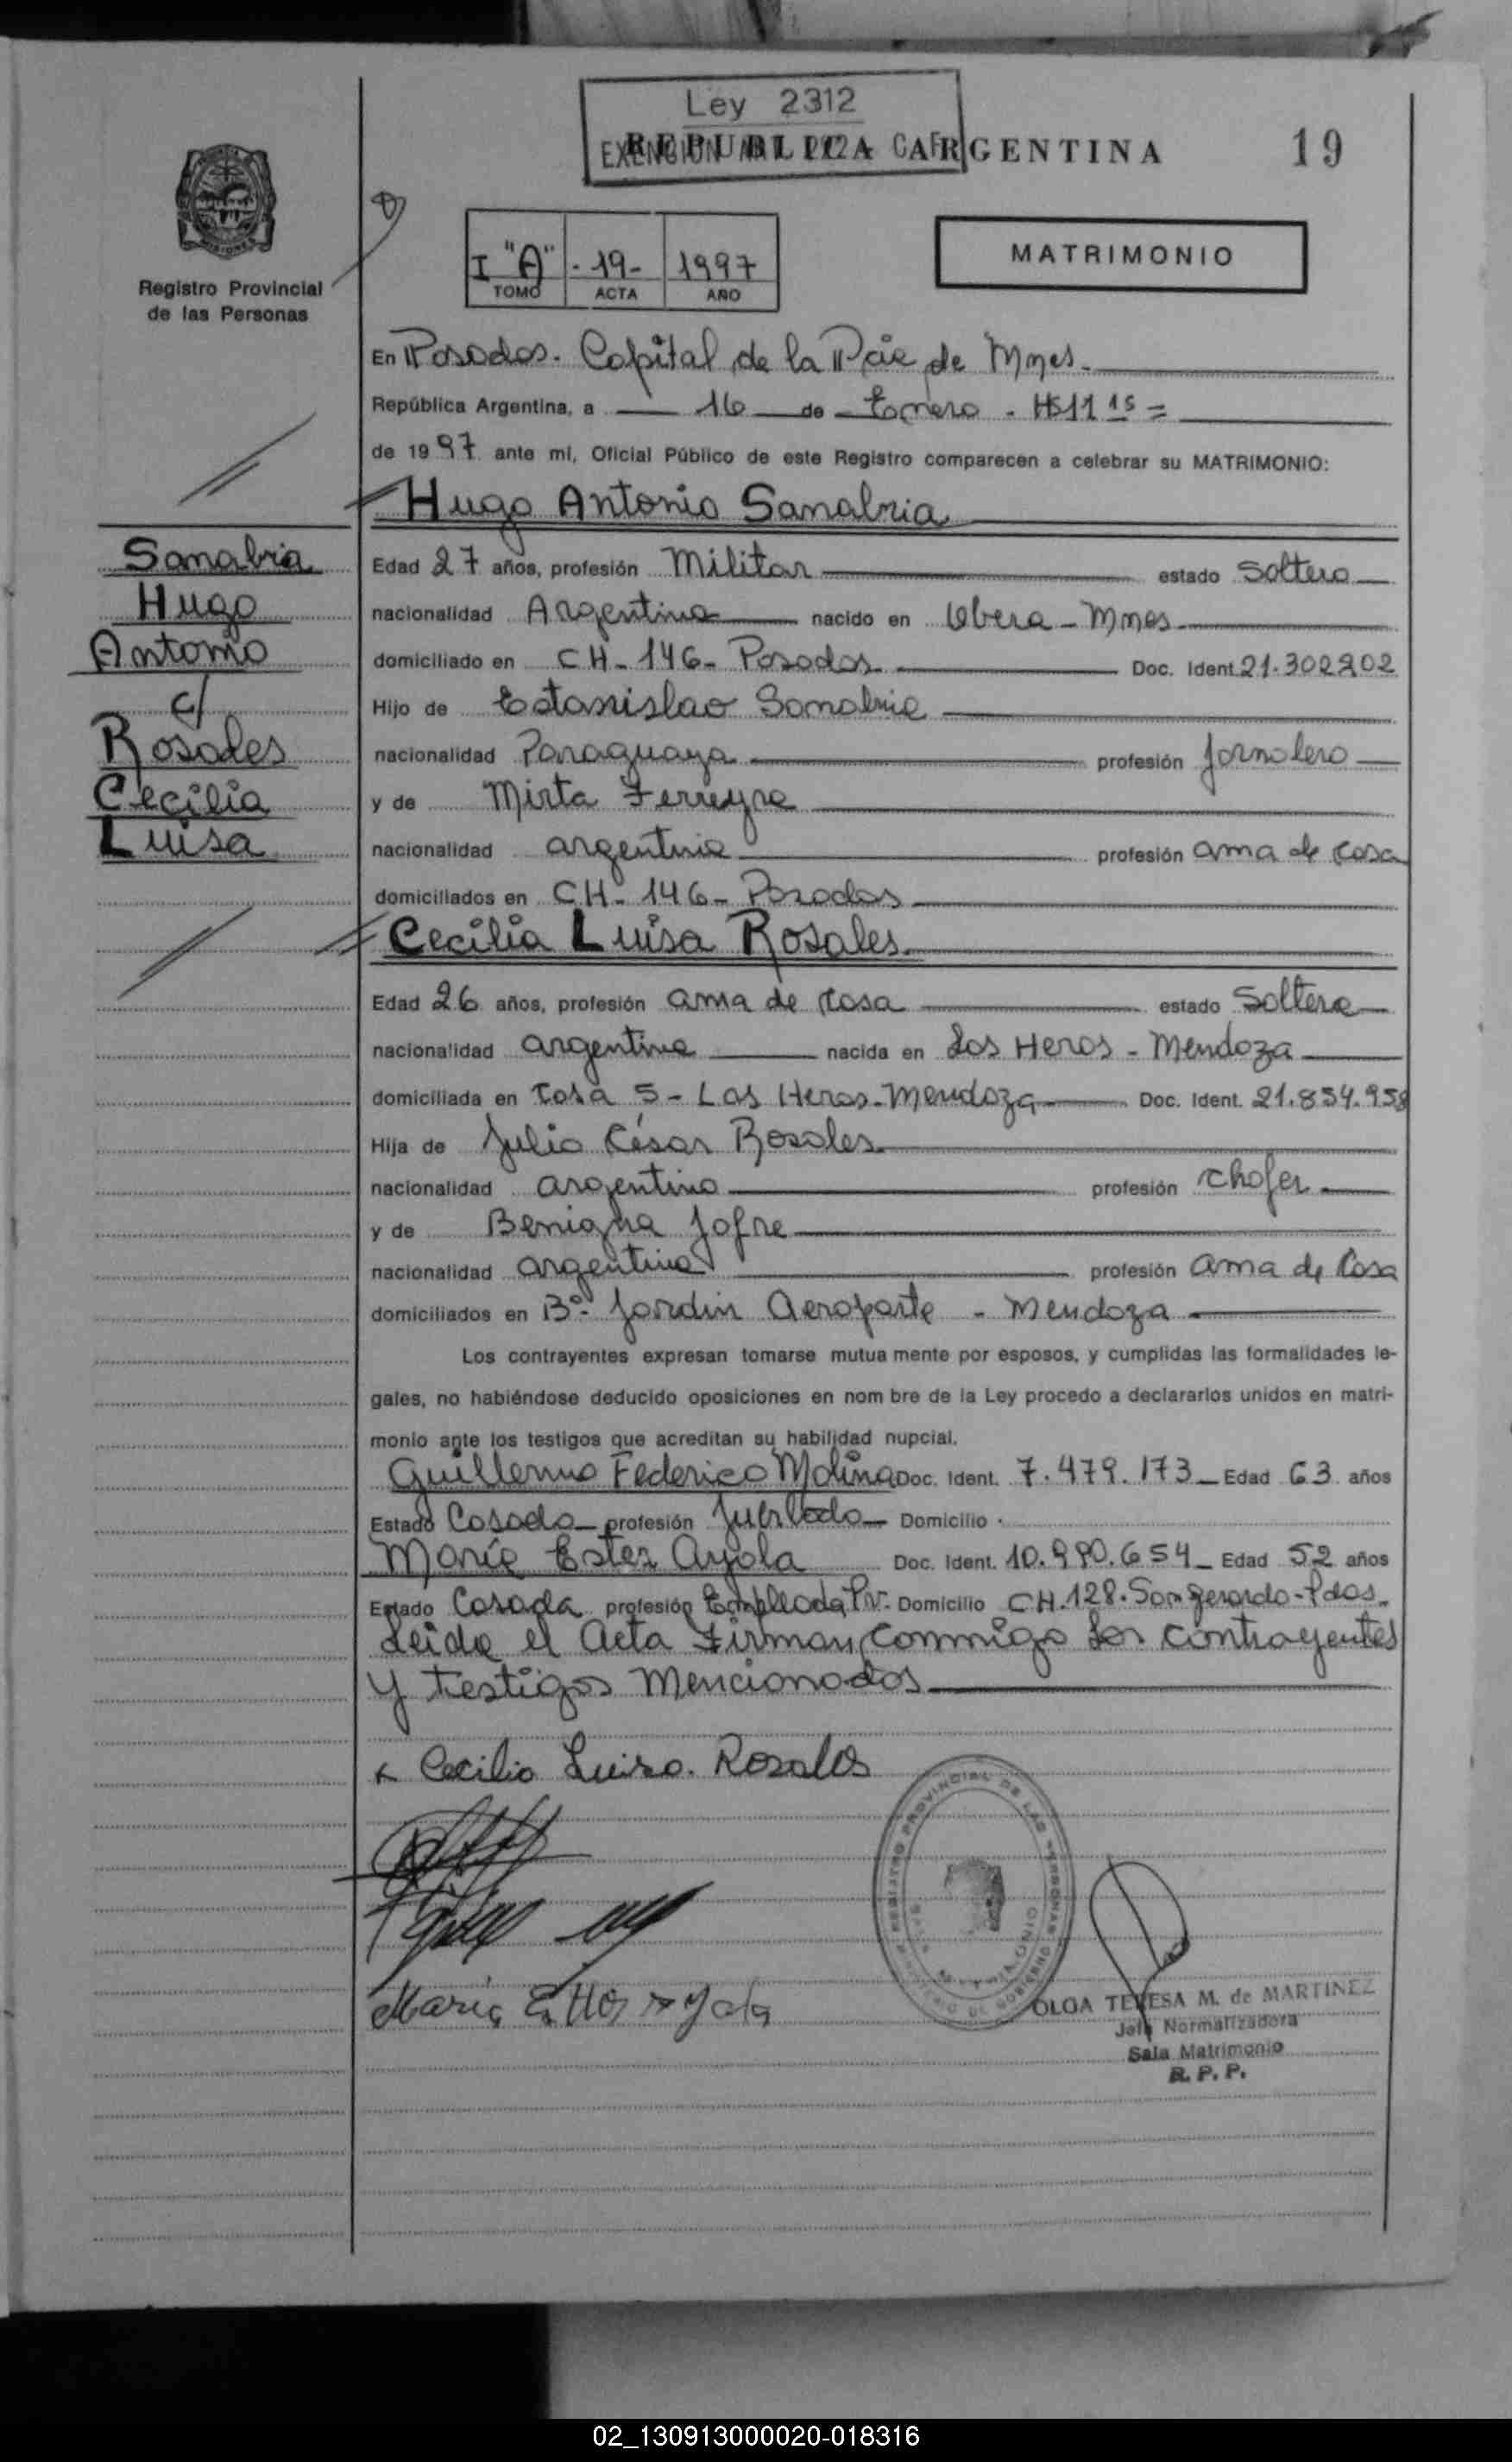 Ley 2312
REPUBLICA ARGENTINA
19
Registro Provincial
de las Personas
I "A" - 19 - 1997
TOMO ACTA AÑO
MATRIMONIO
En Posadas. Capital de la Pcia de Mnes.
República Argentina, a 16 de Enero - Hs 11 15 =
de 1997 ante mi, Oficial Público de este Registro comparecen a celebrar su MATRIMONIO:
Hugo Antonio Sanabria
Sanabria
Hugo
Antonio
c/
Rosales
Cecilia
Luisa
Edad 27 años, profesión Militar estado Soltero
nacionalidad Argentina nacido en Obera - Mnes
domiciliado en CH - 146 - Posadas Doc. Ident. 21.302.202
Hijo de Estanislao Sanabria
nacionalidad Paraguaya profesión Jornalero
y de Mirta Ferreyra
nacionalidad argentina profesión ama de casa
domiciliados en CH - 146 - Posadas
Cecilia Luisa Rosales
Edad 26 años, profesión ama de casa estado Soltera
nacionalidad argentina nacida en Las Heras - Mendoza
domiciliada en Casa 5 - Las Heras - Mendoza Doc. Ident. 21.854.958
Hija de Julio César Rosales
nacionalidad argentina profesión Chofer
y de Benigna Jofre
nacionalidad argentina profesión ama de Casa
domiciliados en Bº - Jardin Aeroparte - Mendoza
Los contrayentes expresan tomarse mutua mente por esposos, y cumplidas las formalidades le-
gales, no habiéndose deducido oposiciones en nom bre de la Ley procedo a declararlos unidos en matri-
monio ante los testigos que acreditan su habilidad nupcial.
Guillermo Federico Molina Doc. Ident. 7.479.173 - Edad 63 años
Estado Casado - profesión Jubilado - Domicilio
María Ester Ayala Doc. Ident. 10.990.654 - Edad 52 años
Estado Casada profesión Empleada Pv. Domicilio CH. 128. San Gerardo - Pdas.
Leida el Acta Firman Conmigo los contrayentes
y testigos Mencionados
Cecilia Luisa. Rosales
María Ester Ayala
REGISTRO PROVINCIAL DE LAS PERSONAS
OLGA TERESA M. de MARTINEZ
Jefa Normalizadora
Sala Matrimonio
R. P. P.
02_130913000020-018316